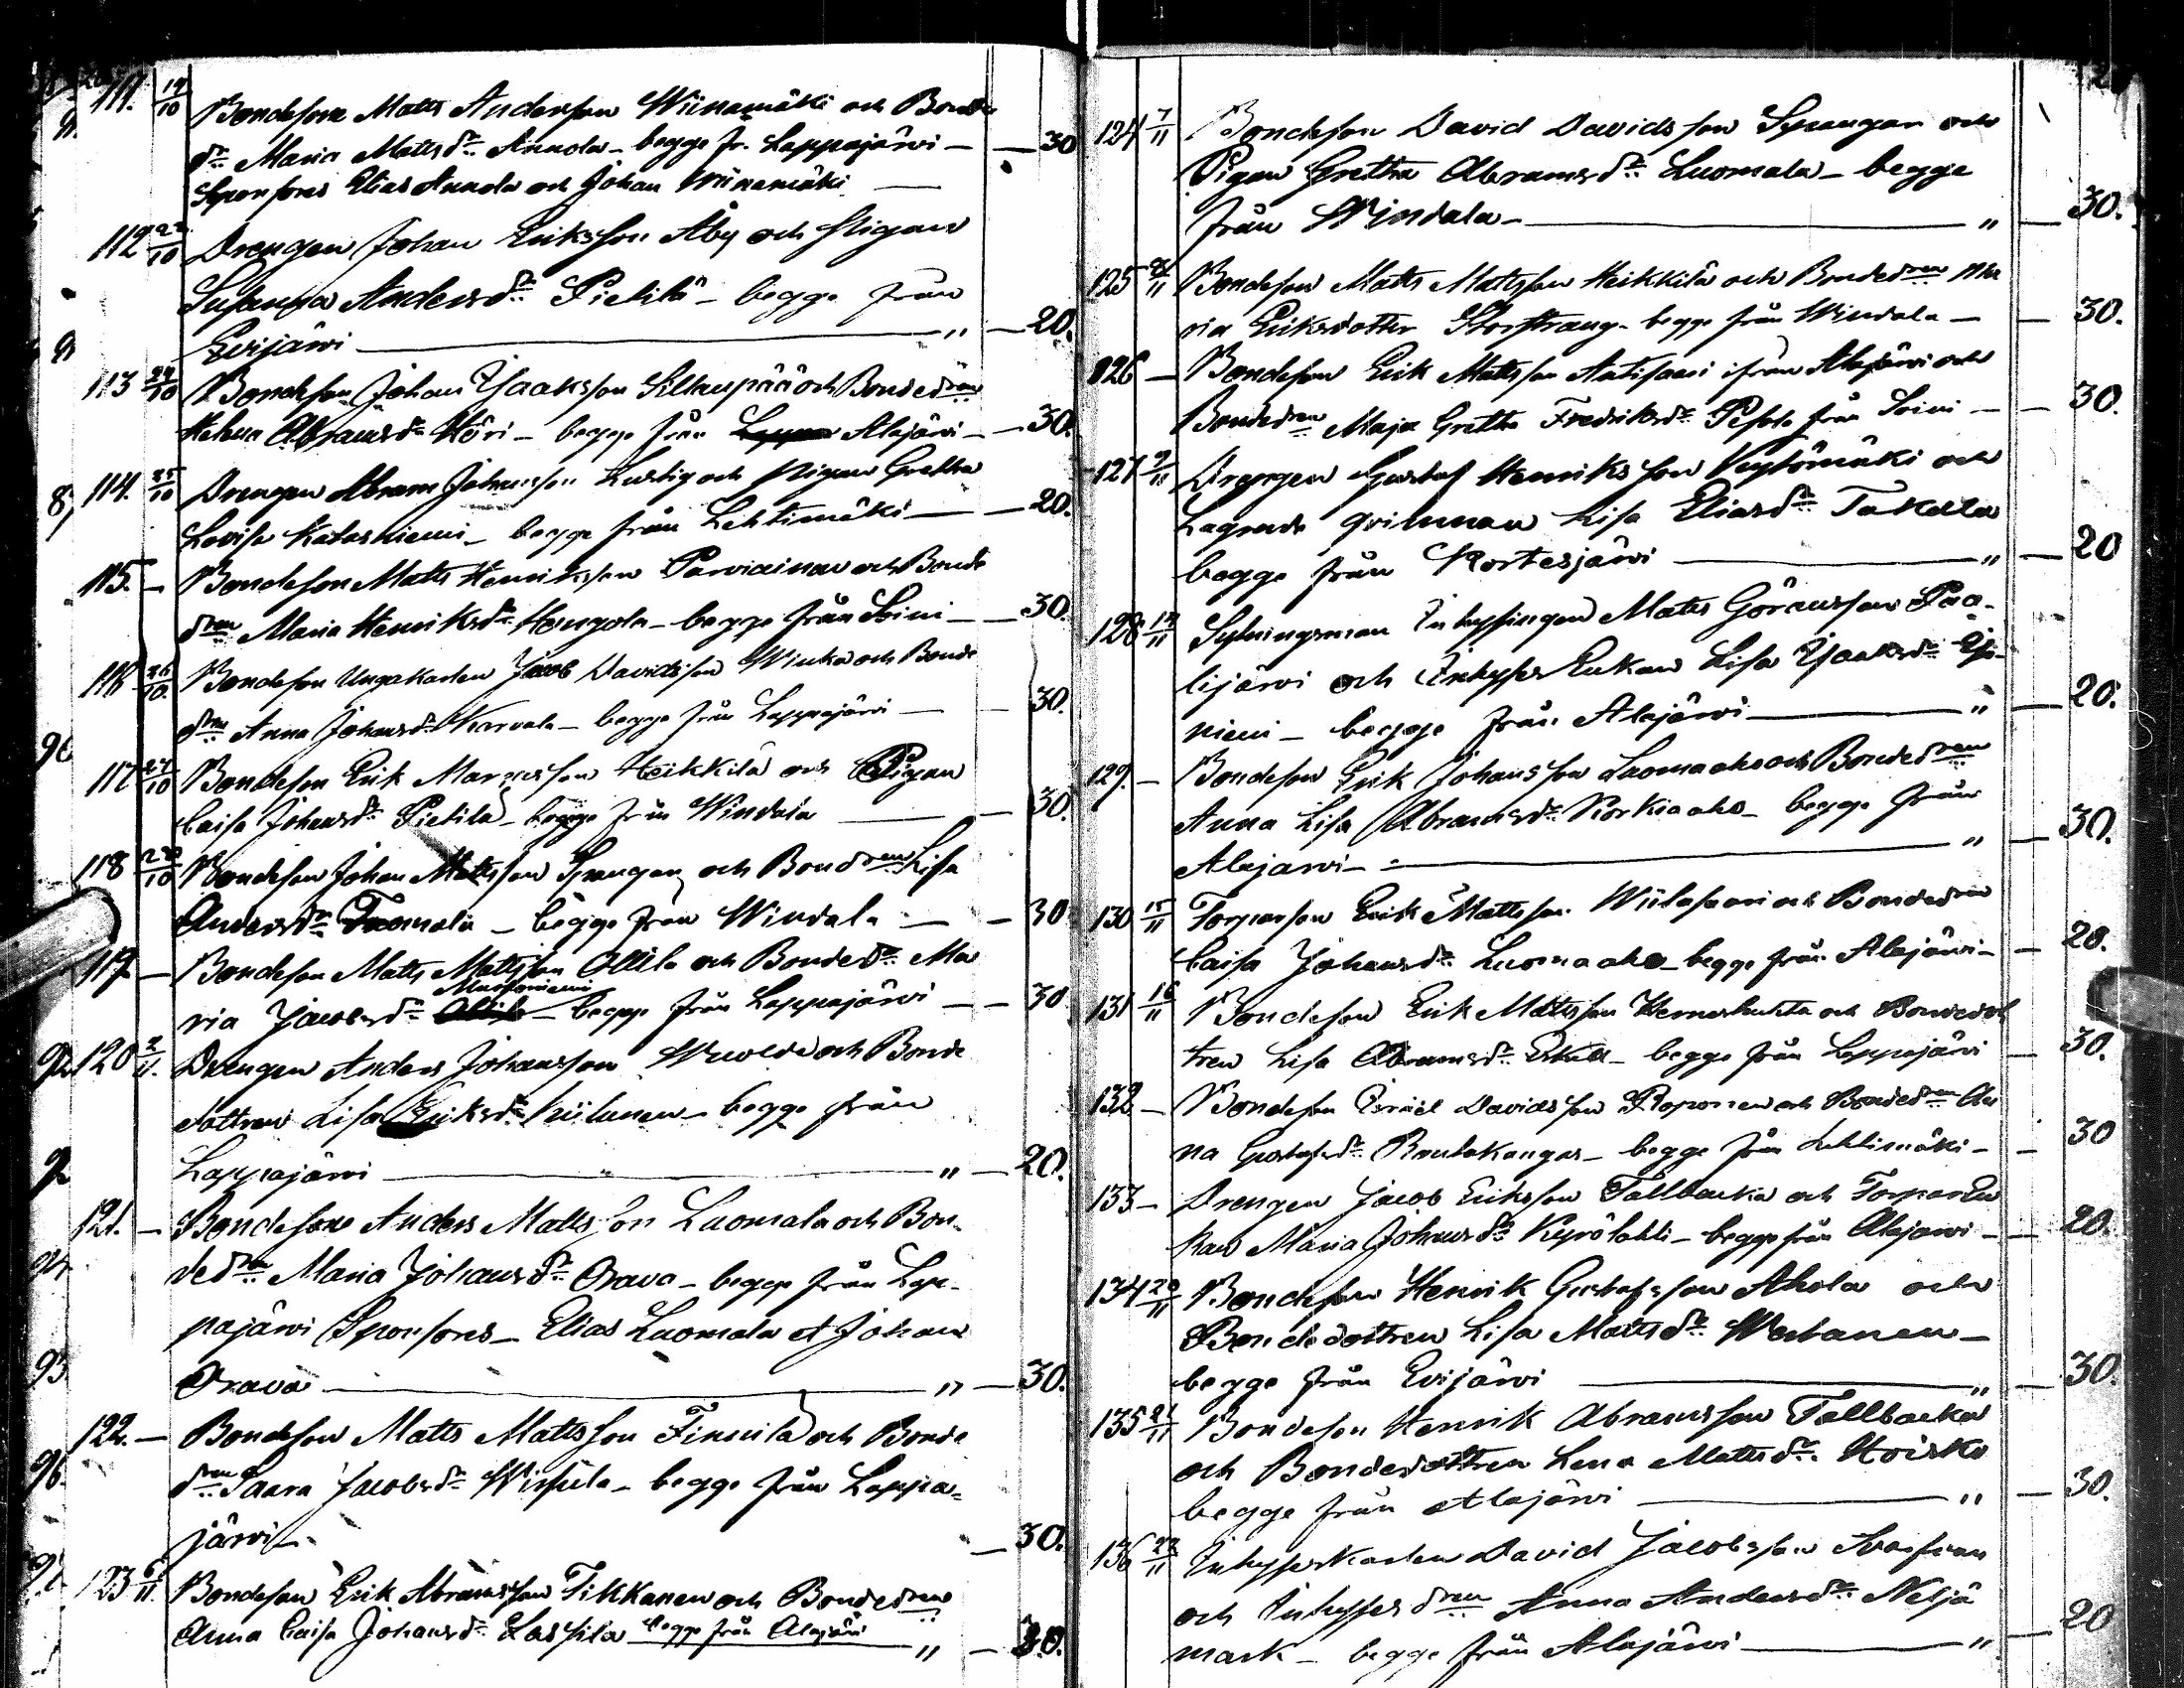 111. 19/10 Bondesson Matts Andersson Wiinamäki och Bonde
dr. Maria Mattsdr. Annola - begge fr. Lappajärvi - 30
Sponsores Elias Annola och Johan Wiinamäki
112 22/10 Drengen Johan Eriksson Åby och Pigan
Susanna Andersdr. Pietilä - begge från
Evijärvi " - 20.
113 24/10 Bondeson Johan Isaaksson Silkupää och Bondedren
Helena Abramsdr. Höri - begge från Alajärvi - 30.
114. 25/10 Drengen Abram Johansson Lustig och pigan Gretha
Lovisa Katasniemi - begge från Lehtimäki - 20.
115. - Bondeson Matts Henriksson Parviainen och Bonde
dren Maria Henriksdr. Hengola - begge från Soini - 30.
116 26/10 Bondeson Ungakarlen Jacob Davidsson Winka och Bonde
dren Anna Johansdr. Karvala - begge från Lappajärvi - 30.
117 27/10 Bondeson Erik Marcusson Heikkilä och Pigan
Caisa Johansdr. Pietilä - begge från Windala - 30.
118 /10 Bondeson Johan Mattsson Spangar och Bondren Lisa
Andersdr. Tuomala - begge från Windala - 30
119 - Bondeson Matts Mattsson Ollila och Bondedr. Ma
ria Jacobsdr. begge från Lappajärvi - 30
120 3/11. Drengen Anders Johansson och Bonde
dottren Lisa Eriksdr. Kiilunen - begge från
Lappajärvi " - 20.
121. - Bondeson Anders Mattsson Luomala och Bon-
dedren Maria Johansdr. Orava - begge från Lap-
pajärvi Sponsores - Elias Luomala et Johan
Orava " - 30.
122. - Bondeson Matts Mattsson Finnilä och Bonde
dren Saara Jacobsdr. Wisuila - begge från Lappa=
järvi - 30.
123 6/11. Bondeson Erik Abramsson Tikkanen och Bondedren
Anna Caisa Johansdr. Lassila begge från Alajärvi " - 30.
124 7/11 Bondeson David Davidsson Spangar och
Pigan Gretha Abramsdr. Luomala - begge
från Windala - " - 30.
125 8/11 Bondeson Matts Mattsson Heikkilä och Bondedren Ma
ria Eriksdotter Storstrang - begge från Windala - 30.
126 - Bondeson Erik Mattsson Autisaari ifrån Alajärvi och
Bondedren Maja Gretha Fredriksdr. Pesola från Soini - 30.
127 9/11 Drengen Gustaf Henriksson Vystömäki och
Lagrade qvinnan Lisa Eliasdr. Takala
begge från Kortesjärvi " - 20
128 14/11 Sytningsman Inhysingen Matts Göransson Paa-
lijärvi och Inhyses Enkan Lisa Isaaksdr.
niemi - begge från Alajärvi " - 20.
129. - Bondeson Erik Johansson Luomaaho och Bondedren
Anna Lisa Abramsdr. Korkiaaho - begge från
Alajärvi - " - 30.
130 15/11 Torparson Erik Mattsson Wiitasaari och Bondedren
Caisa Johansdr. Luomaaho - begge från Alajärvi - 20.
131 16/11 Bondeson Erik Mattsson Herneshuhta och Bondedot
tren Lisa Abramsdr. Eskola - begge från Lappajärvi - 30.
132 - Bondeson Israel Davidsson Roponen och Bondedren An
na Gustafsdr. Rautakangas - begge från Lehtimäki - 30
133 - Drengen Jacob Eriksson Tallbacka och TorparEn
kan Maria Johansdr. Kyrölahti - begge från Alajärvi - 20.
134 20/11 Bondeson Henrik Gustafsson Ahola och
Bondedottren Lisa Mattsdr. Westanen -
begge från Evijärvi " - 30.
135 21/11 Bondeson Henrik Abramsson Tallbacka
och Bondedottren Lena Mattsdr. Hoisko
begge från Alajärvi " - 30.
136 22/11 Inhyseskarlen David Jacobsson
och Inhysesdren Anna Andersdr. Neljä
mark - begge från Alajärvi " - 20